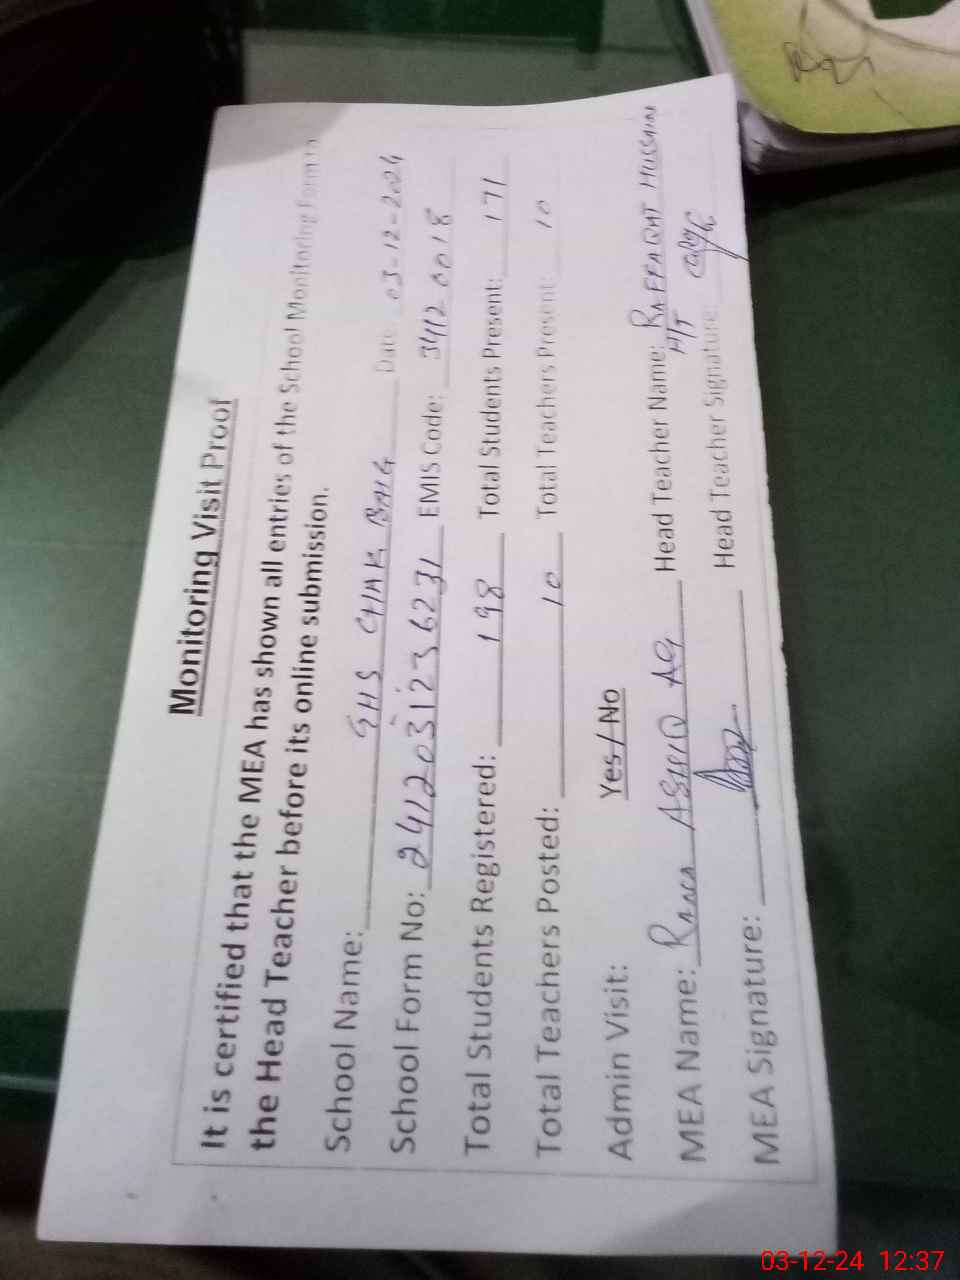 Monitoring Visit Proof
It is certified that the MEA has shown all entries of the School Monitoring Form to
the Head Teacher before its online submission.
School Name: GHS CHAK BAHG Date 03-12-2024
School Form No: 2412031236231 EMIS Code: 34120018
Total Students Registered: 198 Total Students Present: 171
Total Teachers Posted: 10 Total Teachers Present: 10
Admin Visit: Yes/No
MEA Name: ASHIQ Head Teacher Name: RAFFAQAT HUSSAIN
H/T
MEA Signature: Head Teacher Signature:
03-12-24 12:37